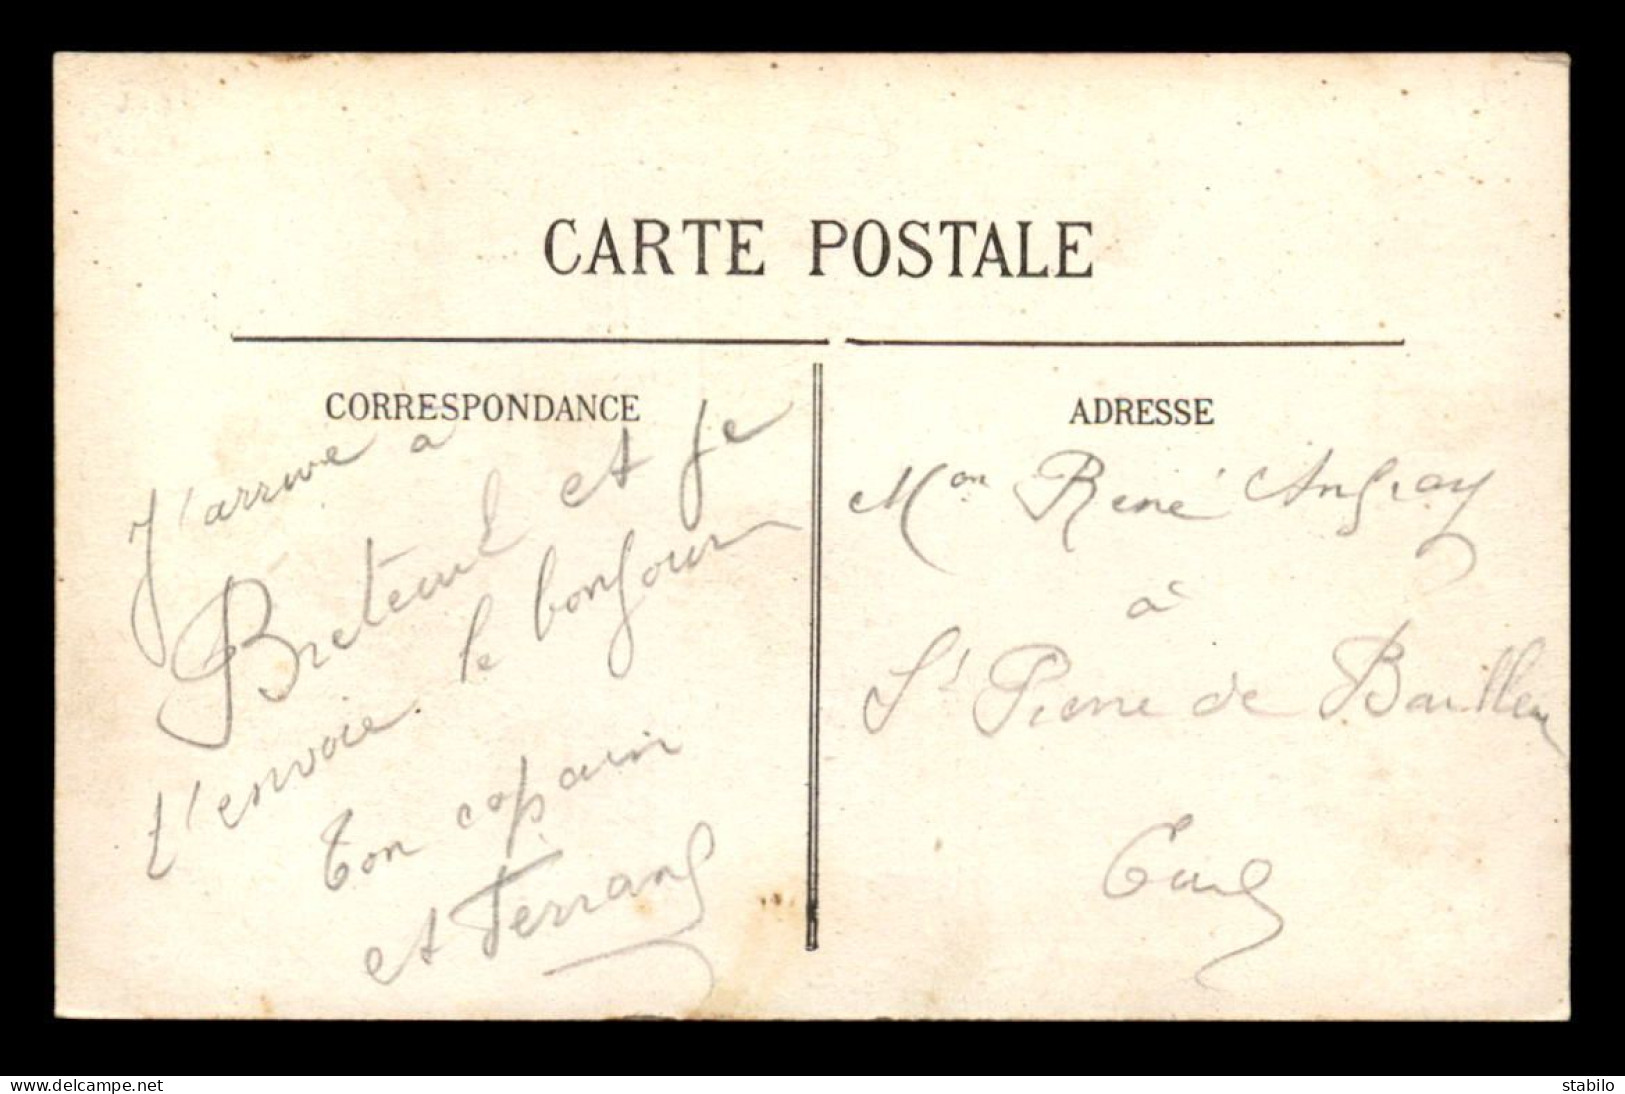 CARTE POSTALE
CORRESPONDANCE
J'arrive à
Breteuil et je
t'envoie le bonjour
ton copain
et
ADRESSE
Mon René
à
St Pierre de Bailleul
Eure
www.delcampe.net
stabilo